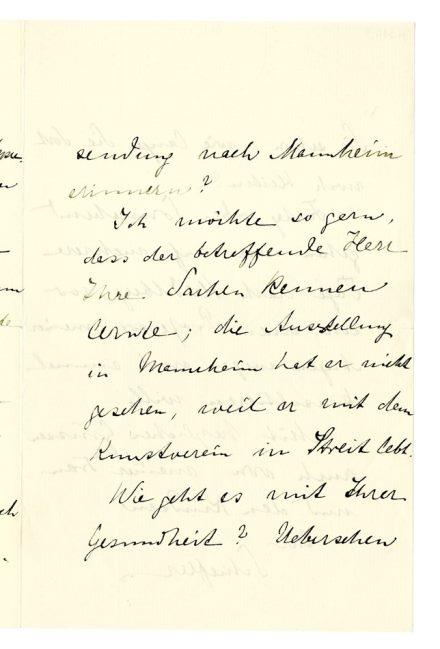 sendung nach Mannheim
erinnern?
Ich möchte so gern,
dass der betreffende Herr
Ihre Sachen kennen
lernte; die Ausstellung
in Mannheim hat er nicht
gesehen, weil er mit dem
Kunstverein in Streit lebt.
Wie geht es mit Ihrer
Gesundheit? Uebersehen